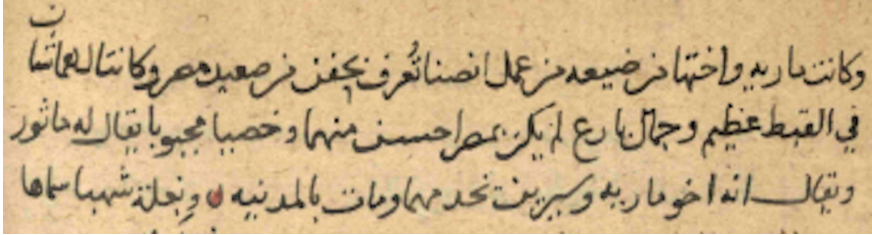 وكانت ماريه واختها من ضيعه من عمل انصنا تُعرف بحفن من صعيد مصر وكانتا لهما شان
في القبط عظيم وجمال بارع لم يكن بمصر احسن منهما وخصيا مجبوبا يقال له مابور
ويقال انه اخو ماريه وسيرين يخدمهما ومات بالمدنيه وبغلة شهبا سماها